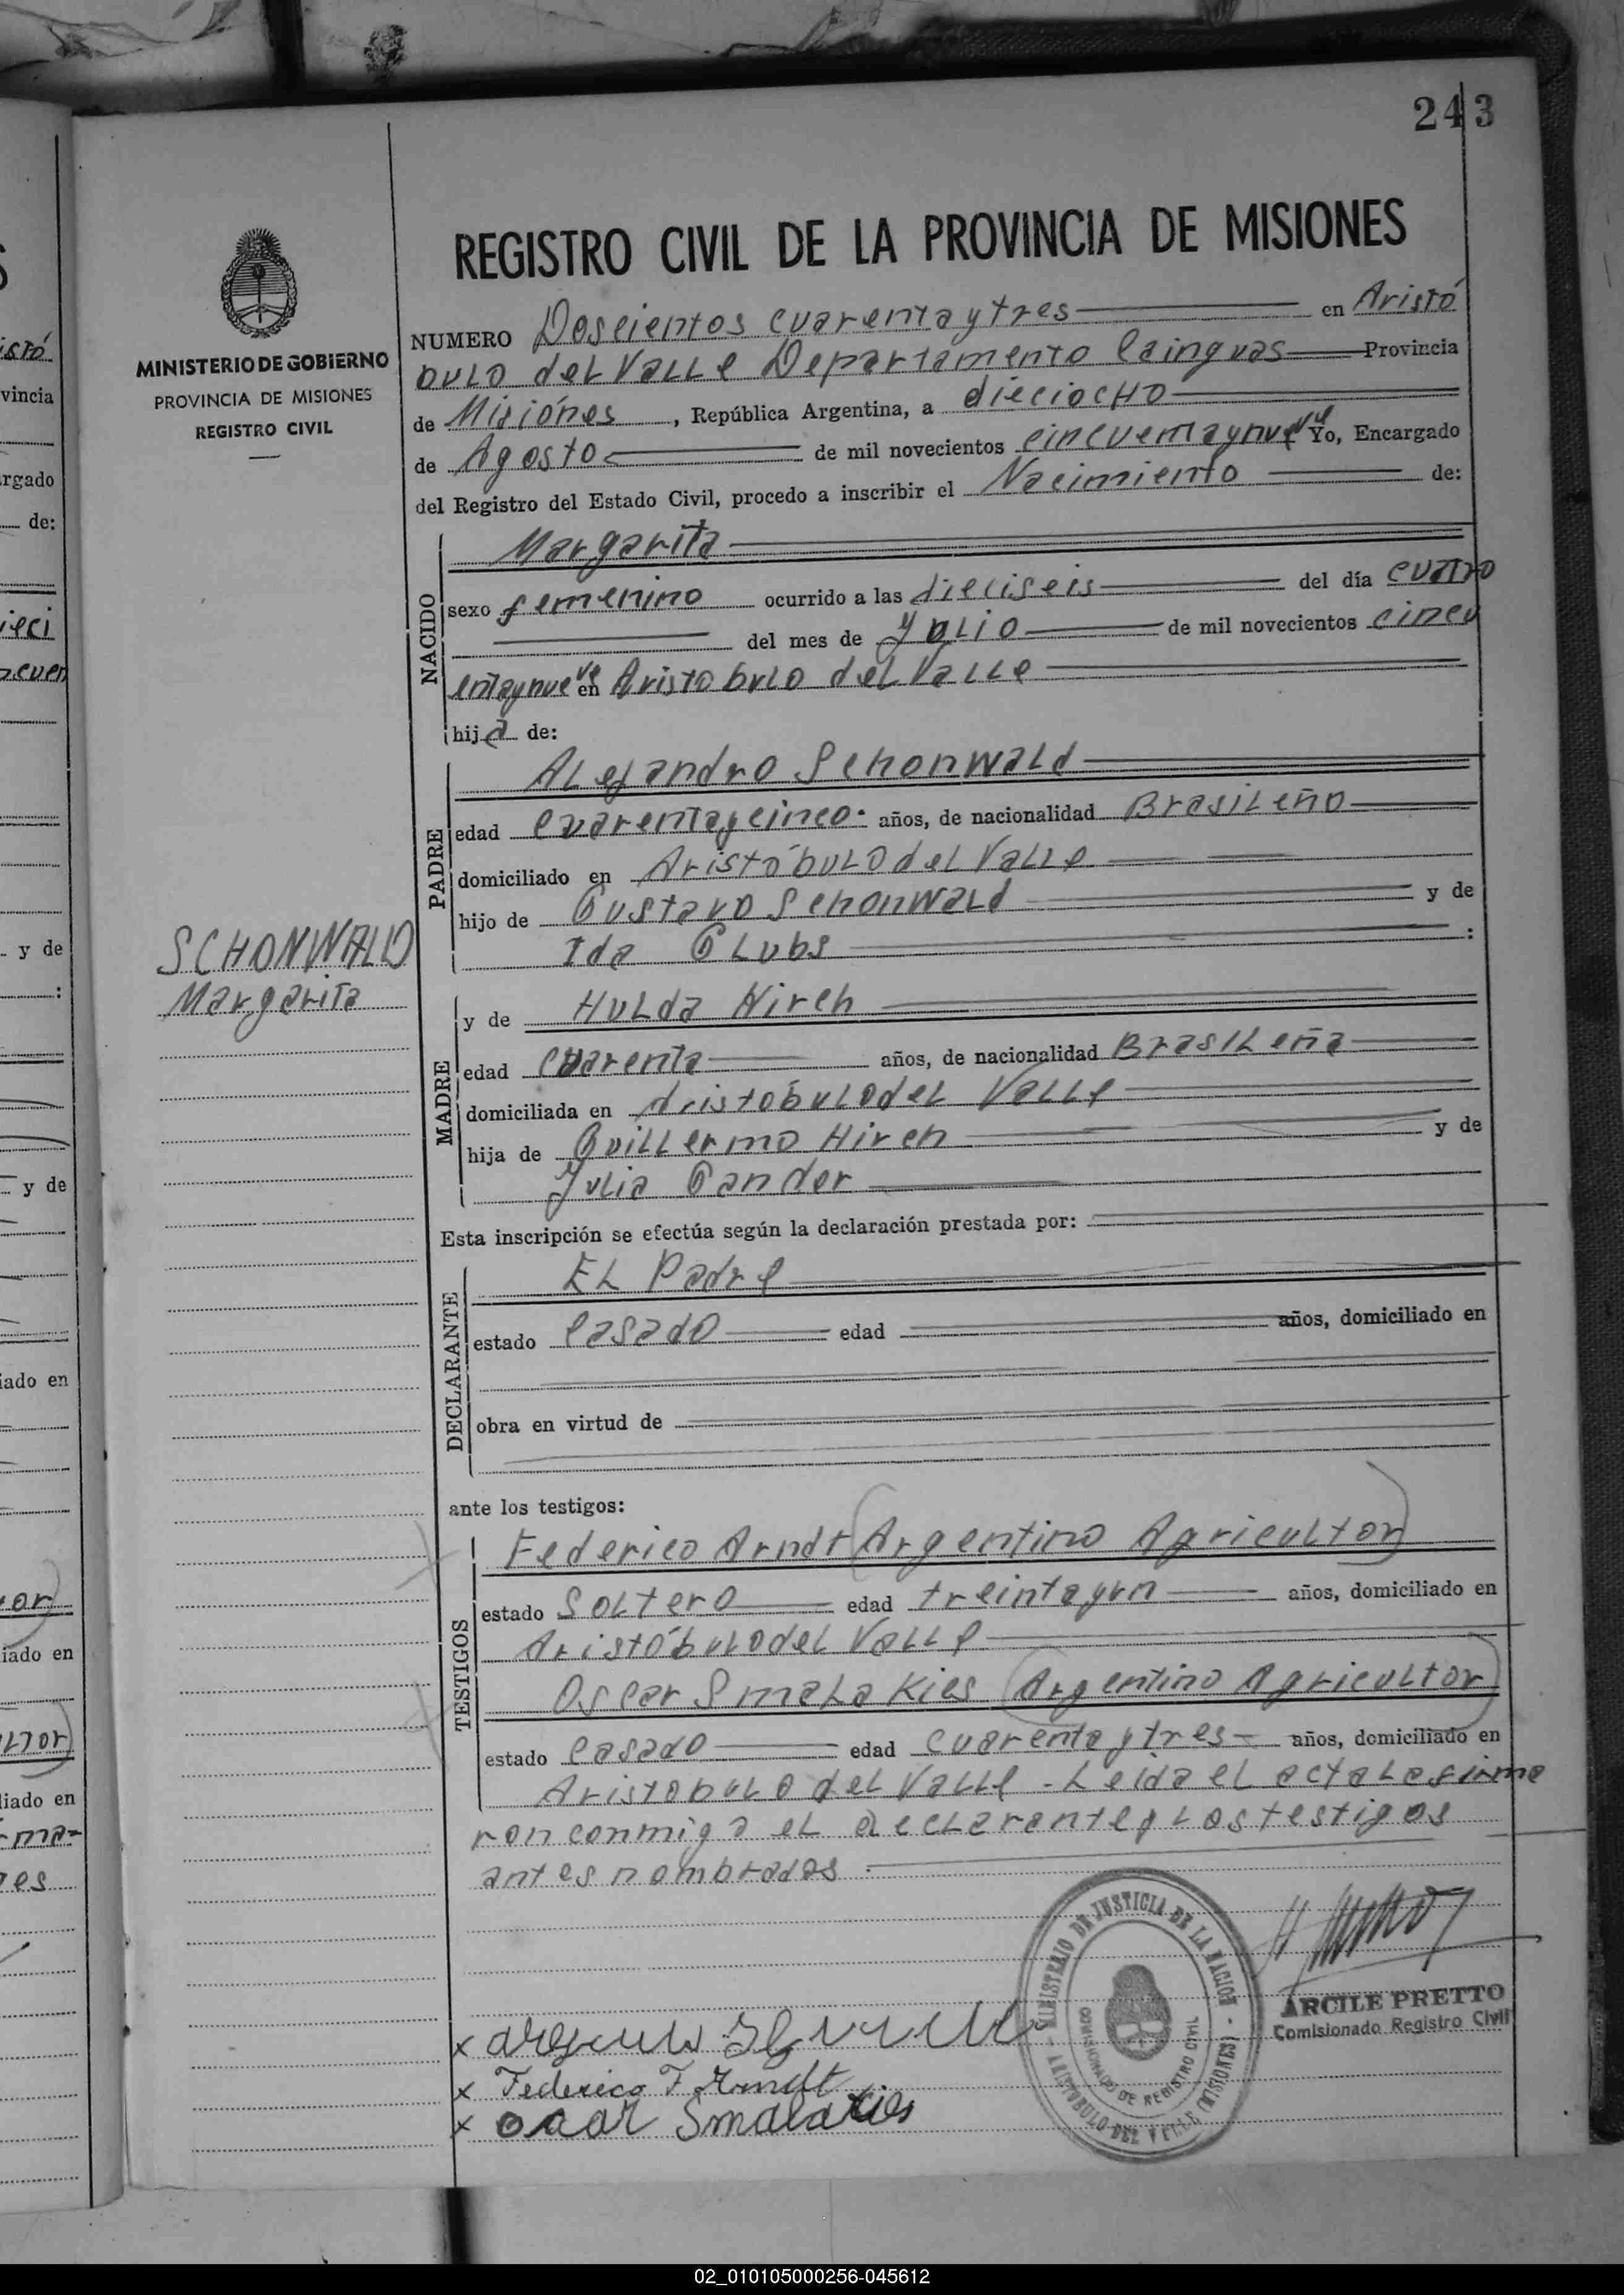 243
REGISTRO CIVIL DE LA PROVINCIA DE MISIONES
MINISTERIO DE GOBIERNO
PROVINCIA DE MISIONES
REGISTRO CIVIL
NUMERO Doscientos cuarentaytres en Aristó
bulo del Valle Departamento Cainguas Provincia
de Misiónes, República Argentina, a dieciocho
de Agosto de mil novecientos cincuentaynueve Yo, Encargado
del Registro del Estado Civil, procedo a inscribir el Nacimiento de:
NACIDO
Margarita
sexo femenino ocurrido a las dieciseis del día cuatro
del mes de Julio de mil novecientos cincu
entaynueve en Aristobulo del Valle
hija de:
PADRE
Alejandro Schonwald
edad cuarentaycinco años, de nacionalidad Brasileño
domiciliado en Aristóbulo del Valle
hijo de Gustavo Schonwald y de
Ida Glubs :
SCHONWALD
Margarita
MADRE
y de Hulda Hirch
edad cuarenta años, de nacionalidad Brasileña
domiciliada en Aristóbulo del Valle
hija de Guillermo Hirch y de
Julia Gander
Esta inscripción se efectúa según la declaración prestada por:
DECLARANTE
El Padre
estado casado edad años, domiciliado en
obra en virtud de
ante los testigos:
TESTIGOS
Federico Arndt (Argentino Agricultor)
estado Soltero edad treintayun años, domiciliado en
Aristóbulo del Valle
Oscar Smalakies (Argentino Agricultor)
estado casado edad cuarentaytres años, domiciliado en
Aristobulo del Valle - Leida el acta la firma
ron conmigo el declarante y los testigos
antes nombrados.
MINISTERIO DE JUSTICIA DE LA NACION
COMISIONADO DE REGISTRO CIVIL
ARISTOBULO DEL VALLE (MISIONES)
ARCILE PRETTO
Comisionado Registro Civil
x
x Federico F. Arndt
x oscar Smalakies
02_010105000256-045612